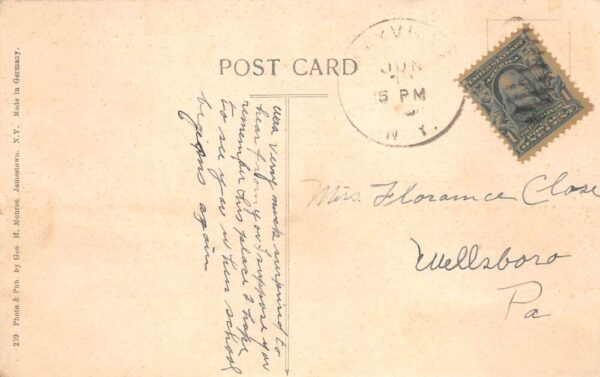 POST CARD
JUN
5 PM
N.Y.
was very much surprised to
hear from you I suppose you
remember this place I hope
to see you when school
begins again
Miss Florance Close
Wellsboro
Pa
279 Photo & Pub. by Geo H. Monroe, Jamestown, N.Y. Made in Germany.